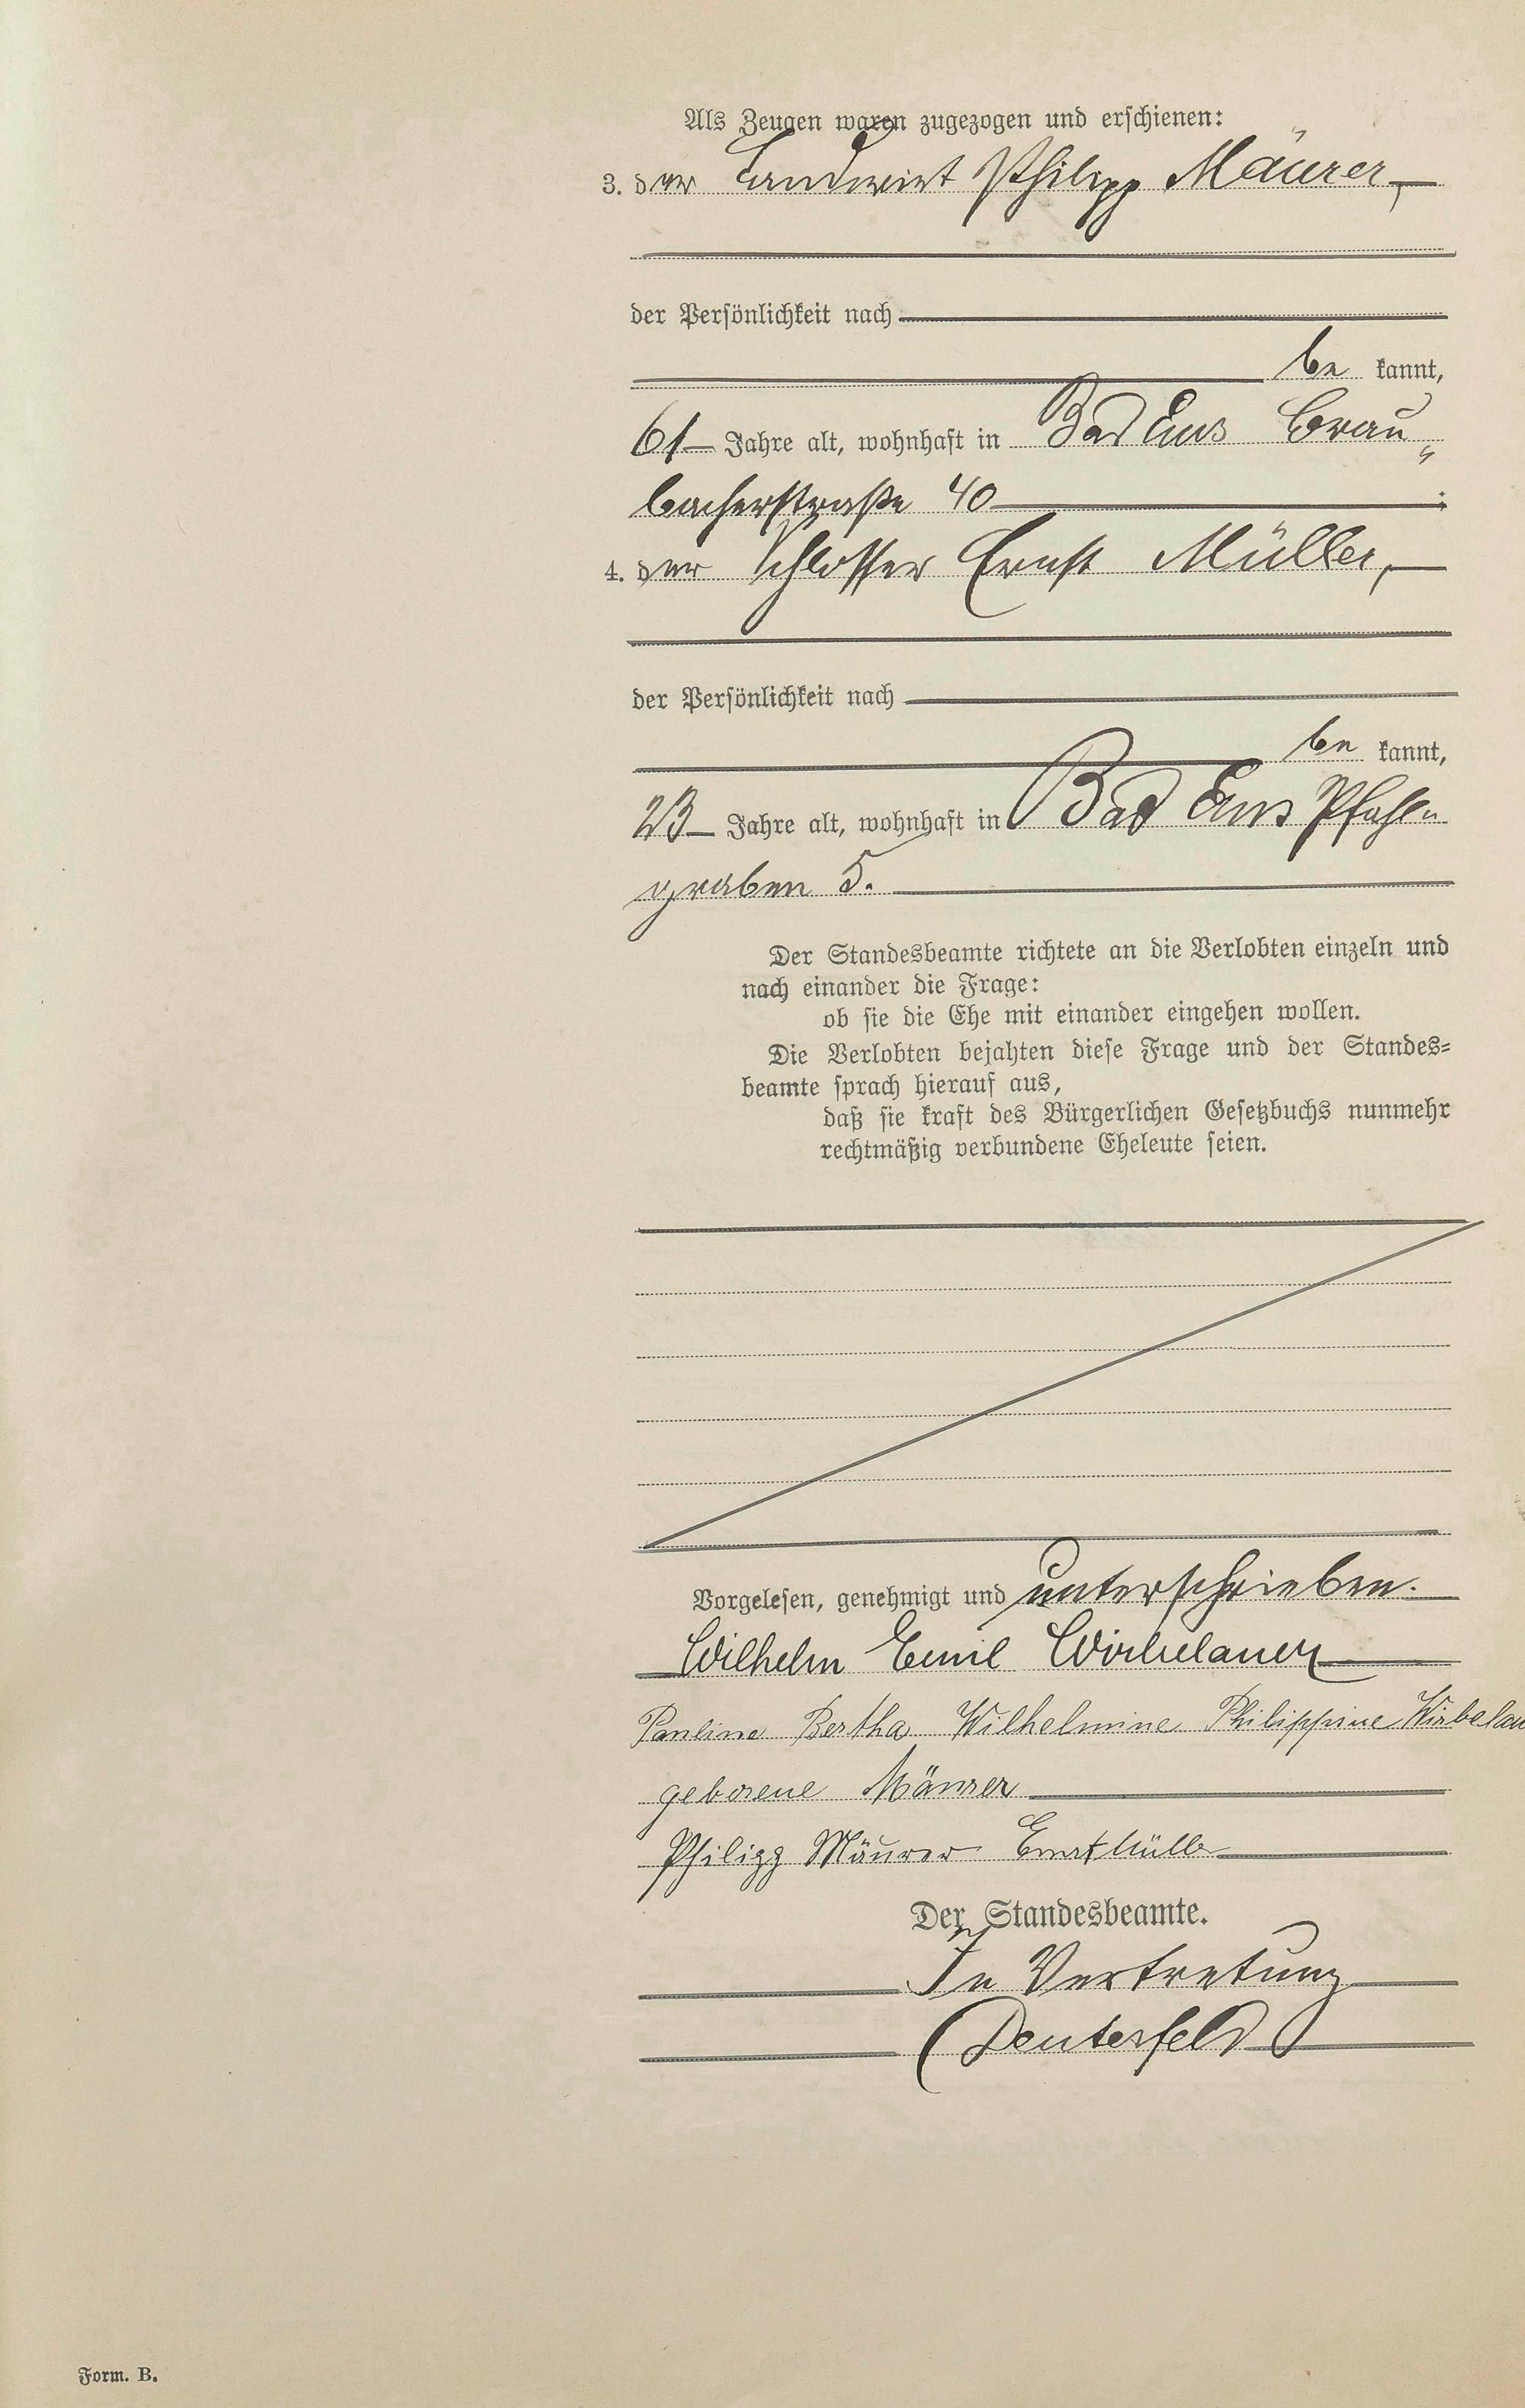 Als Zeugen waren zugezogen und erschienen:
3. der Landwirt Philipp Mäurer,
der Persönlichkeit nach
be kannt,
61 Jahre alt, wohnhaft in Bad Ems Brau„
bacherstraße 40 ;
4. der Schlosser Ernst Müller,
der Persönlichkeit nach
be kannt,
23 Jahre alt, wohnhaft in Bad Ems Pfahl„
graben 5.
Der Standesbeamte richtete an die Verlobten einzeln und
nach einander die Frage:
ob sie die Ehe mit einander eingehen wollen.
Die Verlobten bejahten diese Frage und der Standes=
beamte sprach hierauf aus,
daß sie kraft des Bürgerlichen Gesetzbuchs nunmehr
rechtmäßig verbundene Eheleute seien.
Vorgelesen, genehmigt und unterschrieben.
Wilhelm Emil Wirbelauer
Pauline Bertha Wilhelmine Philippine Wirbelau
geborene Mäurer
Philipp Mäurer Ernst Müller
Der Standesbeamte.
In Vertretung
Deuterfeld
Form. B.